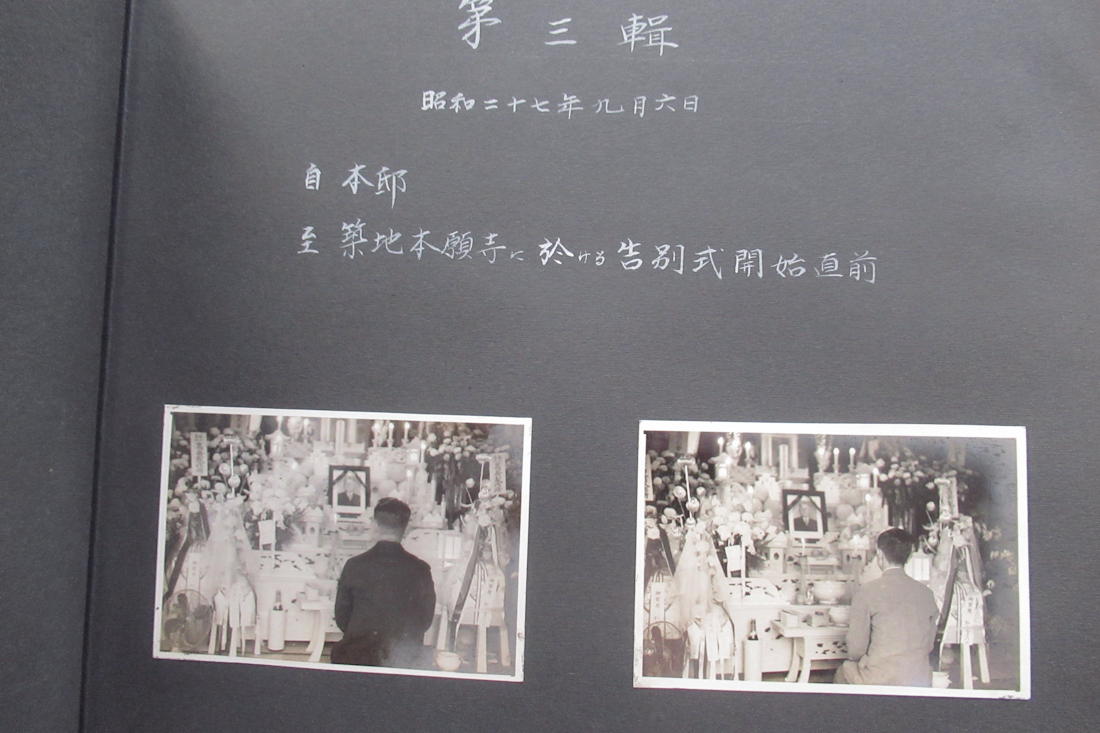 第三輯
昭和二十七年九月六日
自 本邸
至 築地本願寺に於ける告別式開始直前